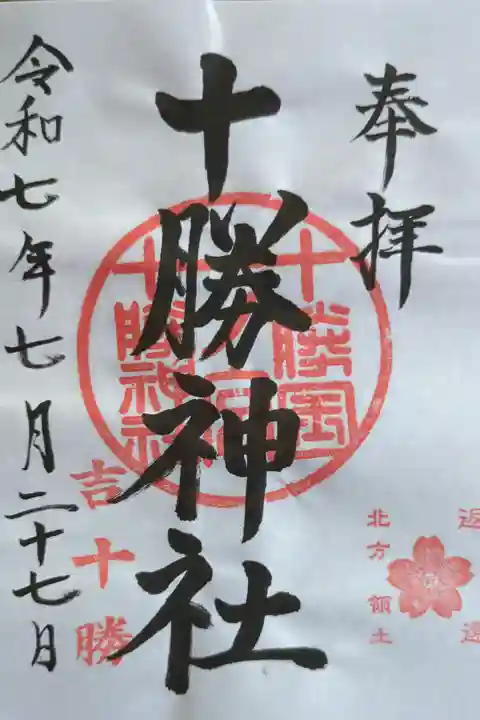 奉拝
十勝神社
十勝国
十勝神社
令和七年七月二十七日
吉十勝
北方領土